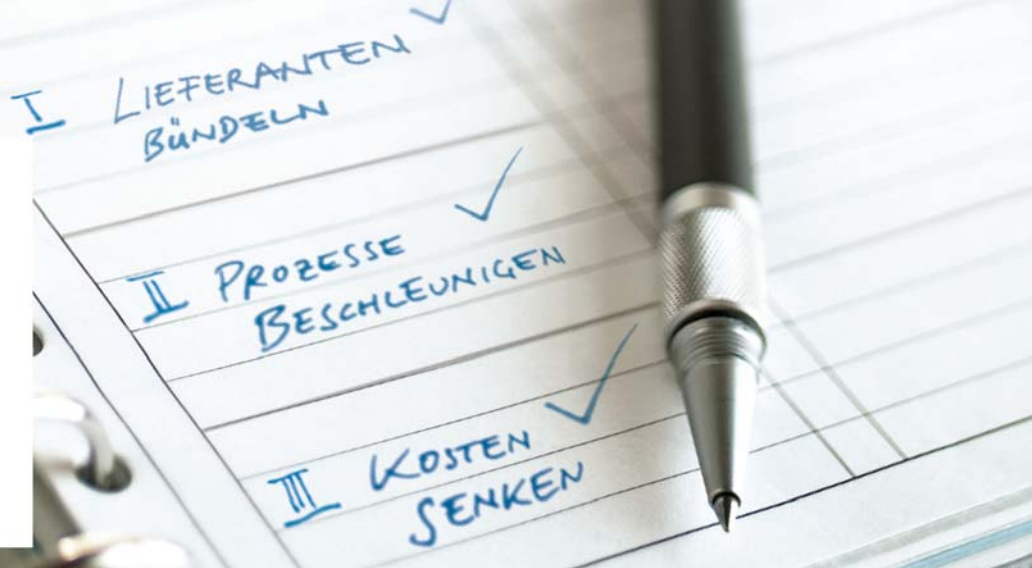 I LIEFERANTEN ✓
BÜNDELN
II PROZESSE ✓
BESCHLEUNIGEN
III KOSTEN ✓
SENKEN